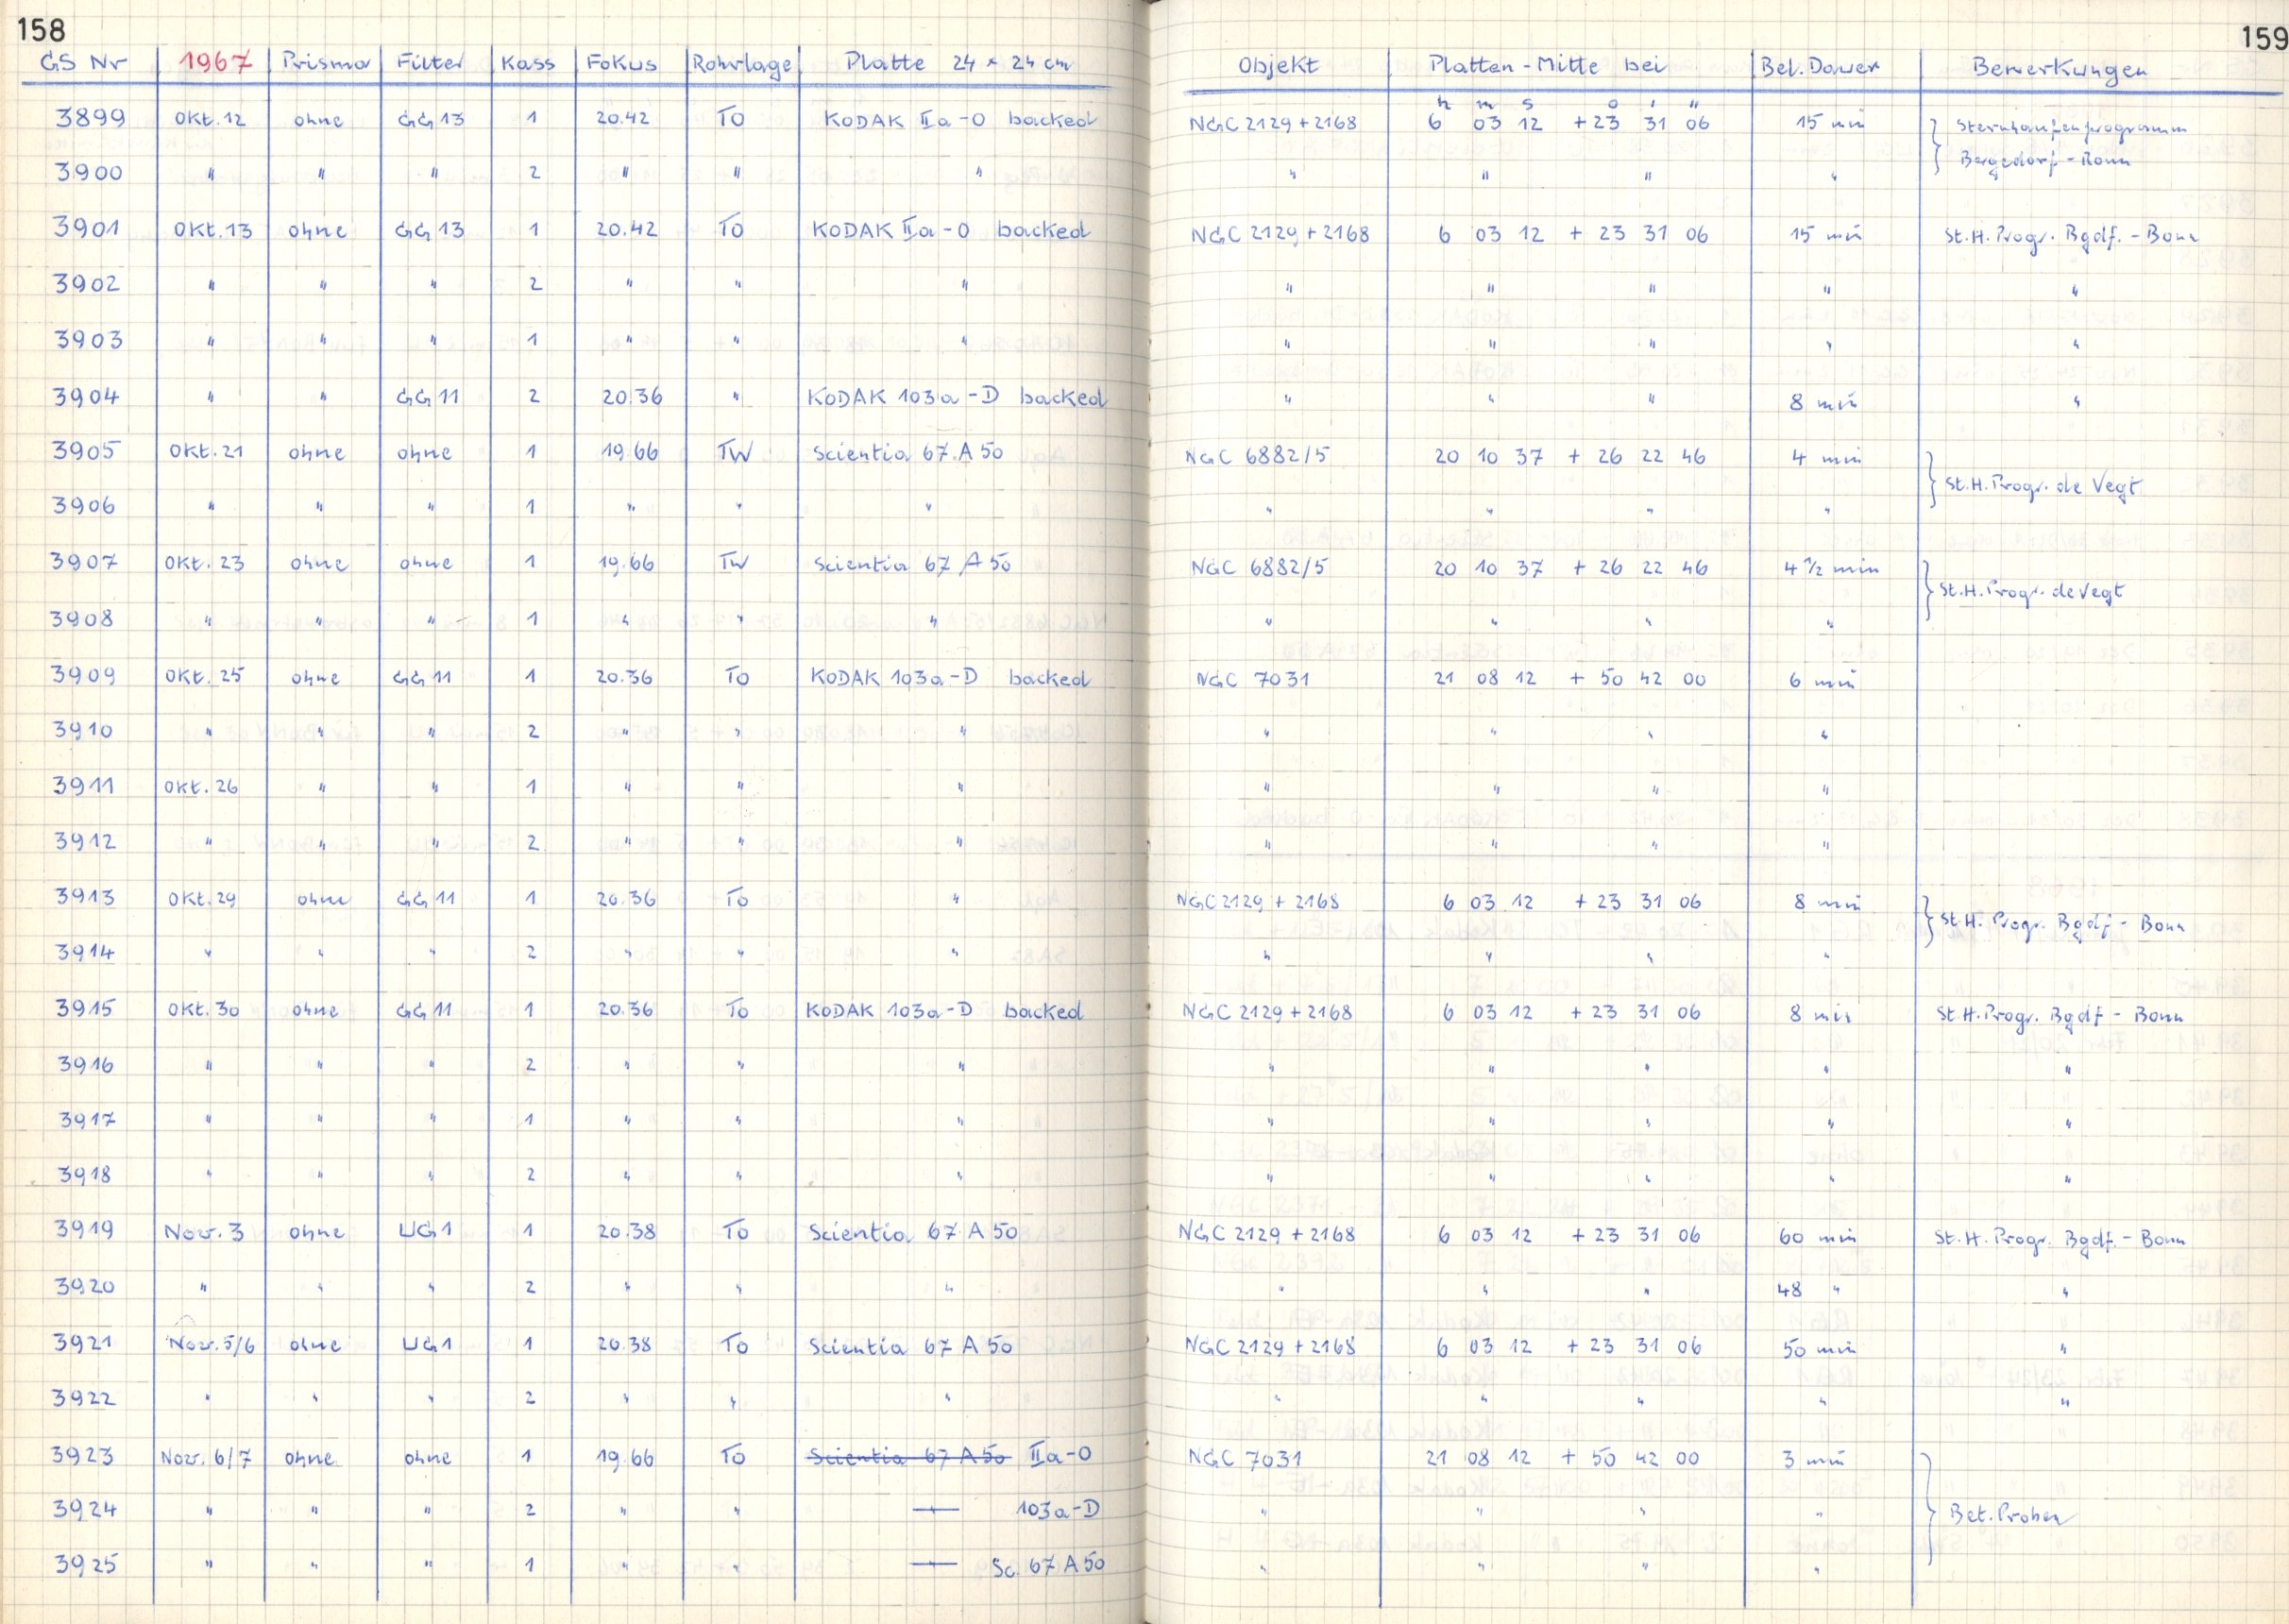 158
159
GS Nr 1967 Prisma Filter Kass Fokus Rohrlage Platte 24 × 24 cm Objekt Platten-Mitte bei Bel.Dauer Bemerkungen
h m s o ' "
3899 Okt.12 ohne GG13 1 20.42 TO KODAK IIa-O backed NGC 2129+2168 6 03 12 +23 31 06 15 min } Sternhaufenprogramm
3900 " " " 2 " " " " " " " Bergedorf-Bonn
3901 Okt.13 ohne GG13 1 20.42 TO KODAK IIa-O backed NGC 2129+2168 6 03 12 + 23 31 06 15 min St.H. Progr. Bgdf. - Bonn
3902 " " " 2 " " " " " " " "
3903 " " " 1 " " " " " " " "
3904 " " GG11 2 20.36 " KODAK 103a-D backed " " " 8 min "
3905 Okt.21 ohne ohne 1 19.66 TW Scientia 67 A 50 NGC 6882/5 20 10 37 + 26 22 46 4 min } St.H. Progr. de Vegt
3906 " " " 1 " " " " " " "
3907 Okt. 23 ohne ohne 1 19.66 TW Scientia 67 A 50 NGC 6882/5 20 10 37 + 26 22 46 4 1/2 min } St.H. Progr. de Vegt
3908 " " " 1 " " " " " " "
3909 Okt. 25 ohne GG11 1 20.36 TO KODAK 103a-D backed NGC 7031 21 08 12 + 50 42 00 6 min
3910 " " " 2 " " " " " " "
3911 Okt. 26 " " 1 " " " " " " "
3912 " " " 2 " " " " " " "
3913 Okt.29 ohne GG11 1 20.36 TO " NGC 2129 + 2168 6 03 12 +23 31 06 8 min } St.H. Progr. Bgdf - Bonn
3914 " " " 2 " " " " " " "
3915 Okt. 30 ohne GG11 1 20.36 TO KODAK 103a-D backed NGC 2129+2168 6 03 12 +23 31 06 8 min St.H. Progr. Bgdf - Bonn
3916 " " " 2 " " " " " " " "
3917 " " " 1 " " " " " " " "
3918 " " " 2 " " " " " " " "
3919 Nov. 3 ohne UG1 1 20.38 TO Scientia 67 A 50 NGC 2129 + 2168 6 03 12 +23 31 06 60 min St.H. Progr. Bgdf. - Bonn
3920 " " " 2 " " " " " " 48 " "
3921 Nov. 5/6 ohne UG1 1 20.38 TO Scientia 67 A 50 NGC 2129 + 2168 6 03 12 +23 31 06 50 min "
3922 " " " 2 " " " " " " " "
3923 Nov. 6/7 ohne ohne 1 19.66 TO Scientia 67 A 50 IIa-O NGC 7031 21 08 12 + 50 42 00 3 min
3924 " " " 2 " " " 103a-D " " " " } Bel. Proben
3925 " " " 1 " " " Sc. 67 A 50 " " " "